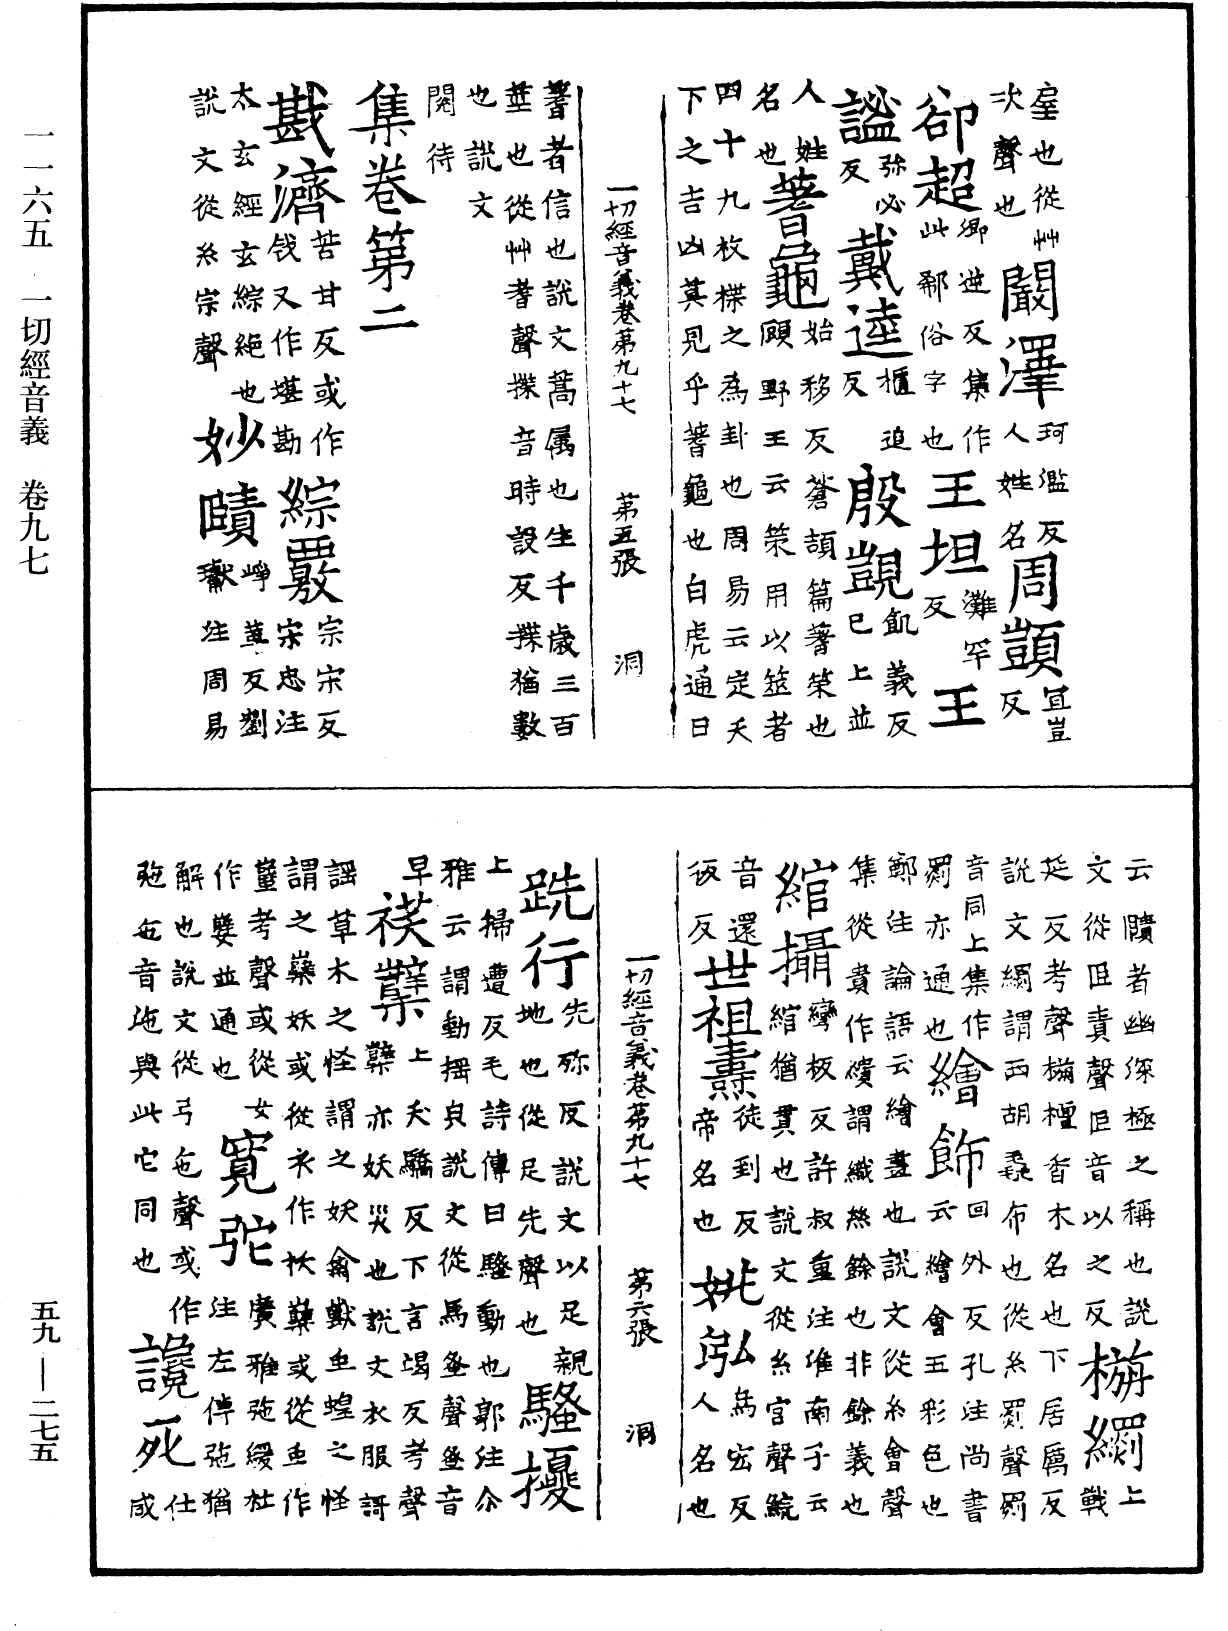 室也從艸
次聲也闞澤珂濫反人姓名周顗冝豈反
郤超卿逆反集作此郗俗字也王坦灘罕反王
謐弥必反戴逵櫃追反殷覬飢義反已上並
人姓名也蓍龜始移反蒼頡篇蓍策也顧野王云策用以筮者
四十九枚楪之為卦也周易云定天
下之吉凶莫見乎蓍龜也白虎通曰
一切經音義卷第九十七 第五張 洞
蓍者信也說文蒿屬也生千歲三百
莖也從艸耆聲揲音時設反揲猶數
也說文
閱待
集卷第二
戡濟苦甘反或作戗又作堪勘綜覈宗宋反宋忠注
太玄經玄綜絕也
說文從糸宗聲妙賾崢革反劉瓛注周易
云賾者幽深極之稱也說
文從𦣞責聲𦣞音以之反栴罽上戰
延反考聲栴檀香木名也下居厲反
說文綱謂西胡毳布也從糸罽聲罽
音同上集作罽亦通也繪飾回外反孔注尚書云繪會五彩色也
鄭注論語云繪畫也說文從糸會聲
集從貴作繢謂織絲餘也非餘義也
綰攝彎板反許叔重注淮南子云綰猶貫也說文從糸官聲鯇
音還世祖燾徒到反帝名也姚泓烏宏反人名也
板反
一切經音義卷第九十七 第六張 洞
跣行先殄反說文以足親地也從足先聲也騷擾
上掃遭反毛詩傳曰騷動也郭注尒
雅云謂動搖皃說文從馬蚤聲蚤音
早祦櫱上夭驕反下言竭反考聲櫱亦妖災也說文衣服謌
謡草木之怪謂之妖禽獸虫蝗之怪
謂之櫱妖或從衣作䄏櫱或從虫作
蠥考聲或從女作孽並通也寬㢮廣雅㢮緩杜注左傳㢮猶
解也說文從弓㐌聲或作㢮㐌音迤與此它同也讒死仕咸